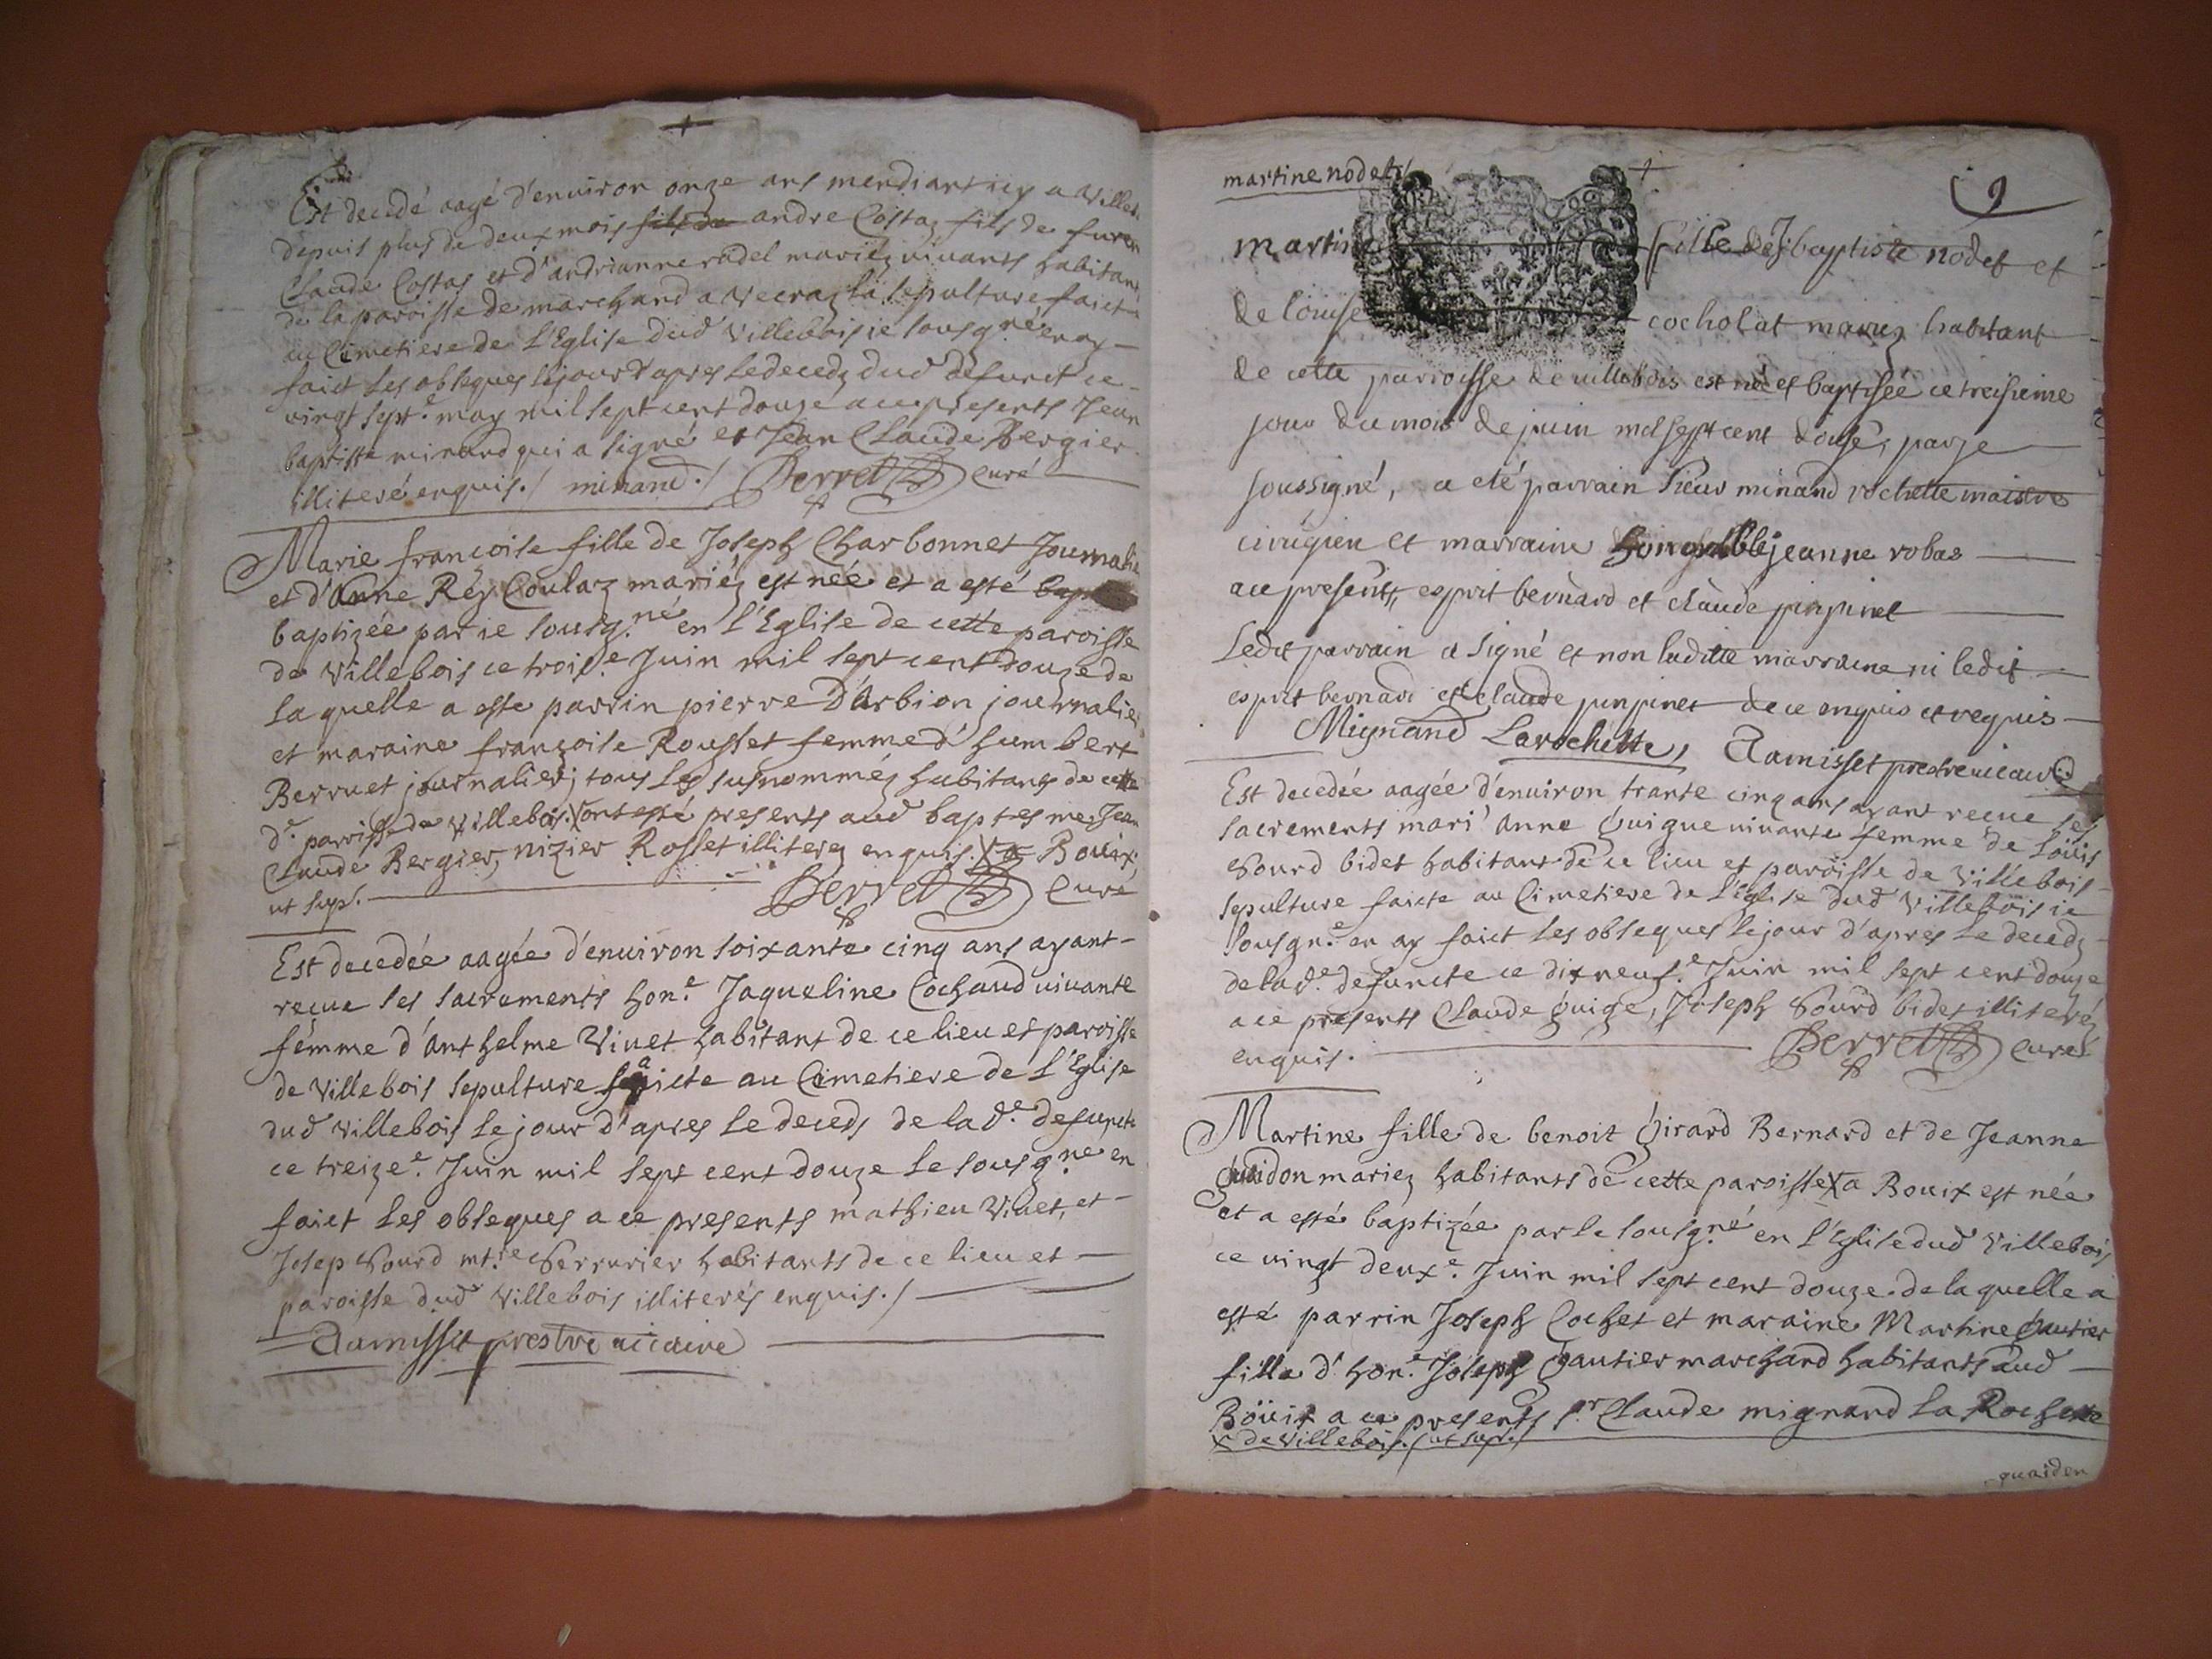 Est decedé aagé d'enuiron onze ans mendiant icy a Ville
depuis plus de deux mois fils de andre Costaz fils de furen
Claude Costas et d'andrianne radel mariez viuants habitans
de la paroisse de marchand a Vecraz la sepulture faicte
au Cimetiere de l'Eglise dud Villebois ie sousg.né en ay
faict les obseques le jour d'apres le decedz dud defunct ce
vingt sept.e may mil sept cent douze a ce presents Jean
baptiste minand qui a signé et Jean Claude Bergier
illiteré enquis./ minand./ Berret Curé
Marie françoise fille de Joseph Charbonnet Journalie
et d'Anne Rey Coulaz mariéz est née et a esté
baptizée par ie sousg.né en l'Eglise de cette paroisse
de Villebois ce trois.e Juin mil sept cent douze de
laquelle a este parrin pierre D'Arbion journalier
et maraine françoise Rousset femme d'humbert
Berruet journalier; tous les susnomméz habitants de cette
d.e paroisse de Villebois. X ont esté presents aud baptesme Jean
Claude Bergier, nizier Rosset illiterez enquis. X a Bouix,
ut sup.
Berret Curé
Est decedée aagée d'enuiron soixante cinq ans ayant
reçue les sacrements hon.e Jaqueline Cochaud viuante
femme d'Anthelme Viuet habitant de ce lieu et paroisse
de Villebois sepulture faicte au Cimetiere de l'Eglise
dud Villebois le jour d'apres le deceds de la d.e defuncte
ce treize.e Juin mil sept cent douze le sousg.né en
faict les obseques a ce presents mathieu Viuet, et
Josep Sourd mt.re Serrurier habitants de ce lieu et
paroisse dud Villebois illiterés enquis./
Aamisset prestre uicaire
martine nodet
9
martin fille de J baptiste nodet et
de louise cochotat mariez habitant
de cette parroisse de uillebois est né et baptisée ce treisieme
jour du mois de juin mil sept cent douse, par je
soussigné, a eté parrain Sieur minand rochette maistre
cirugien et marraine honorable jeanne robas
a ce presents, esprit bernard et claude pinpinet
Ledit parrain a signé et non laditte marraine ni ledit
esprit bernard et claude pinpinet de ce enquis et requis
Mignand Larochette, Aamisset prestre uicaire
Est decedée aagée d'enuiron trante cinq ans ayant reçue les
sacrements mari'anne Guigue uiuante femme de Loüis
Sourd bidet habitant de ce lieu et paroisse de Villebois
sepulture faicte au Cimetiere de l'Eglise dud Villebois ie
sousgn.é en ay faict les obseques le jour d'apres le decedz
de la d.e defuncte ce dix neuf.e Juin mil sept cent douze
a ce presents Claude Guige, Joseph Sourd bidet illiteréz
enquis. Berret Curé
Martine fille de benoit Girard Bernard et de Jeanne
Guidon mariez habitants de cette paroisse X a Bouix est née
et a esté baptizée par le sousg.né en l'Eglise dud Villebois
ce vingt deux.e Juin mil sept cent douze. de laquelle a
esté parrin Joseph Cochet et maraine Martine Gautier
fille d'hon.e Joseph Gautier marchand habitants aud
Boüix a ce presents s.r Claude mignand La Rochette
X de Villebois. / ut supr./
guaiden